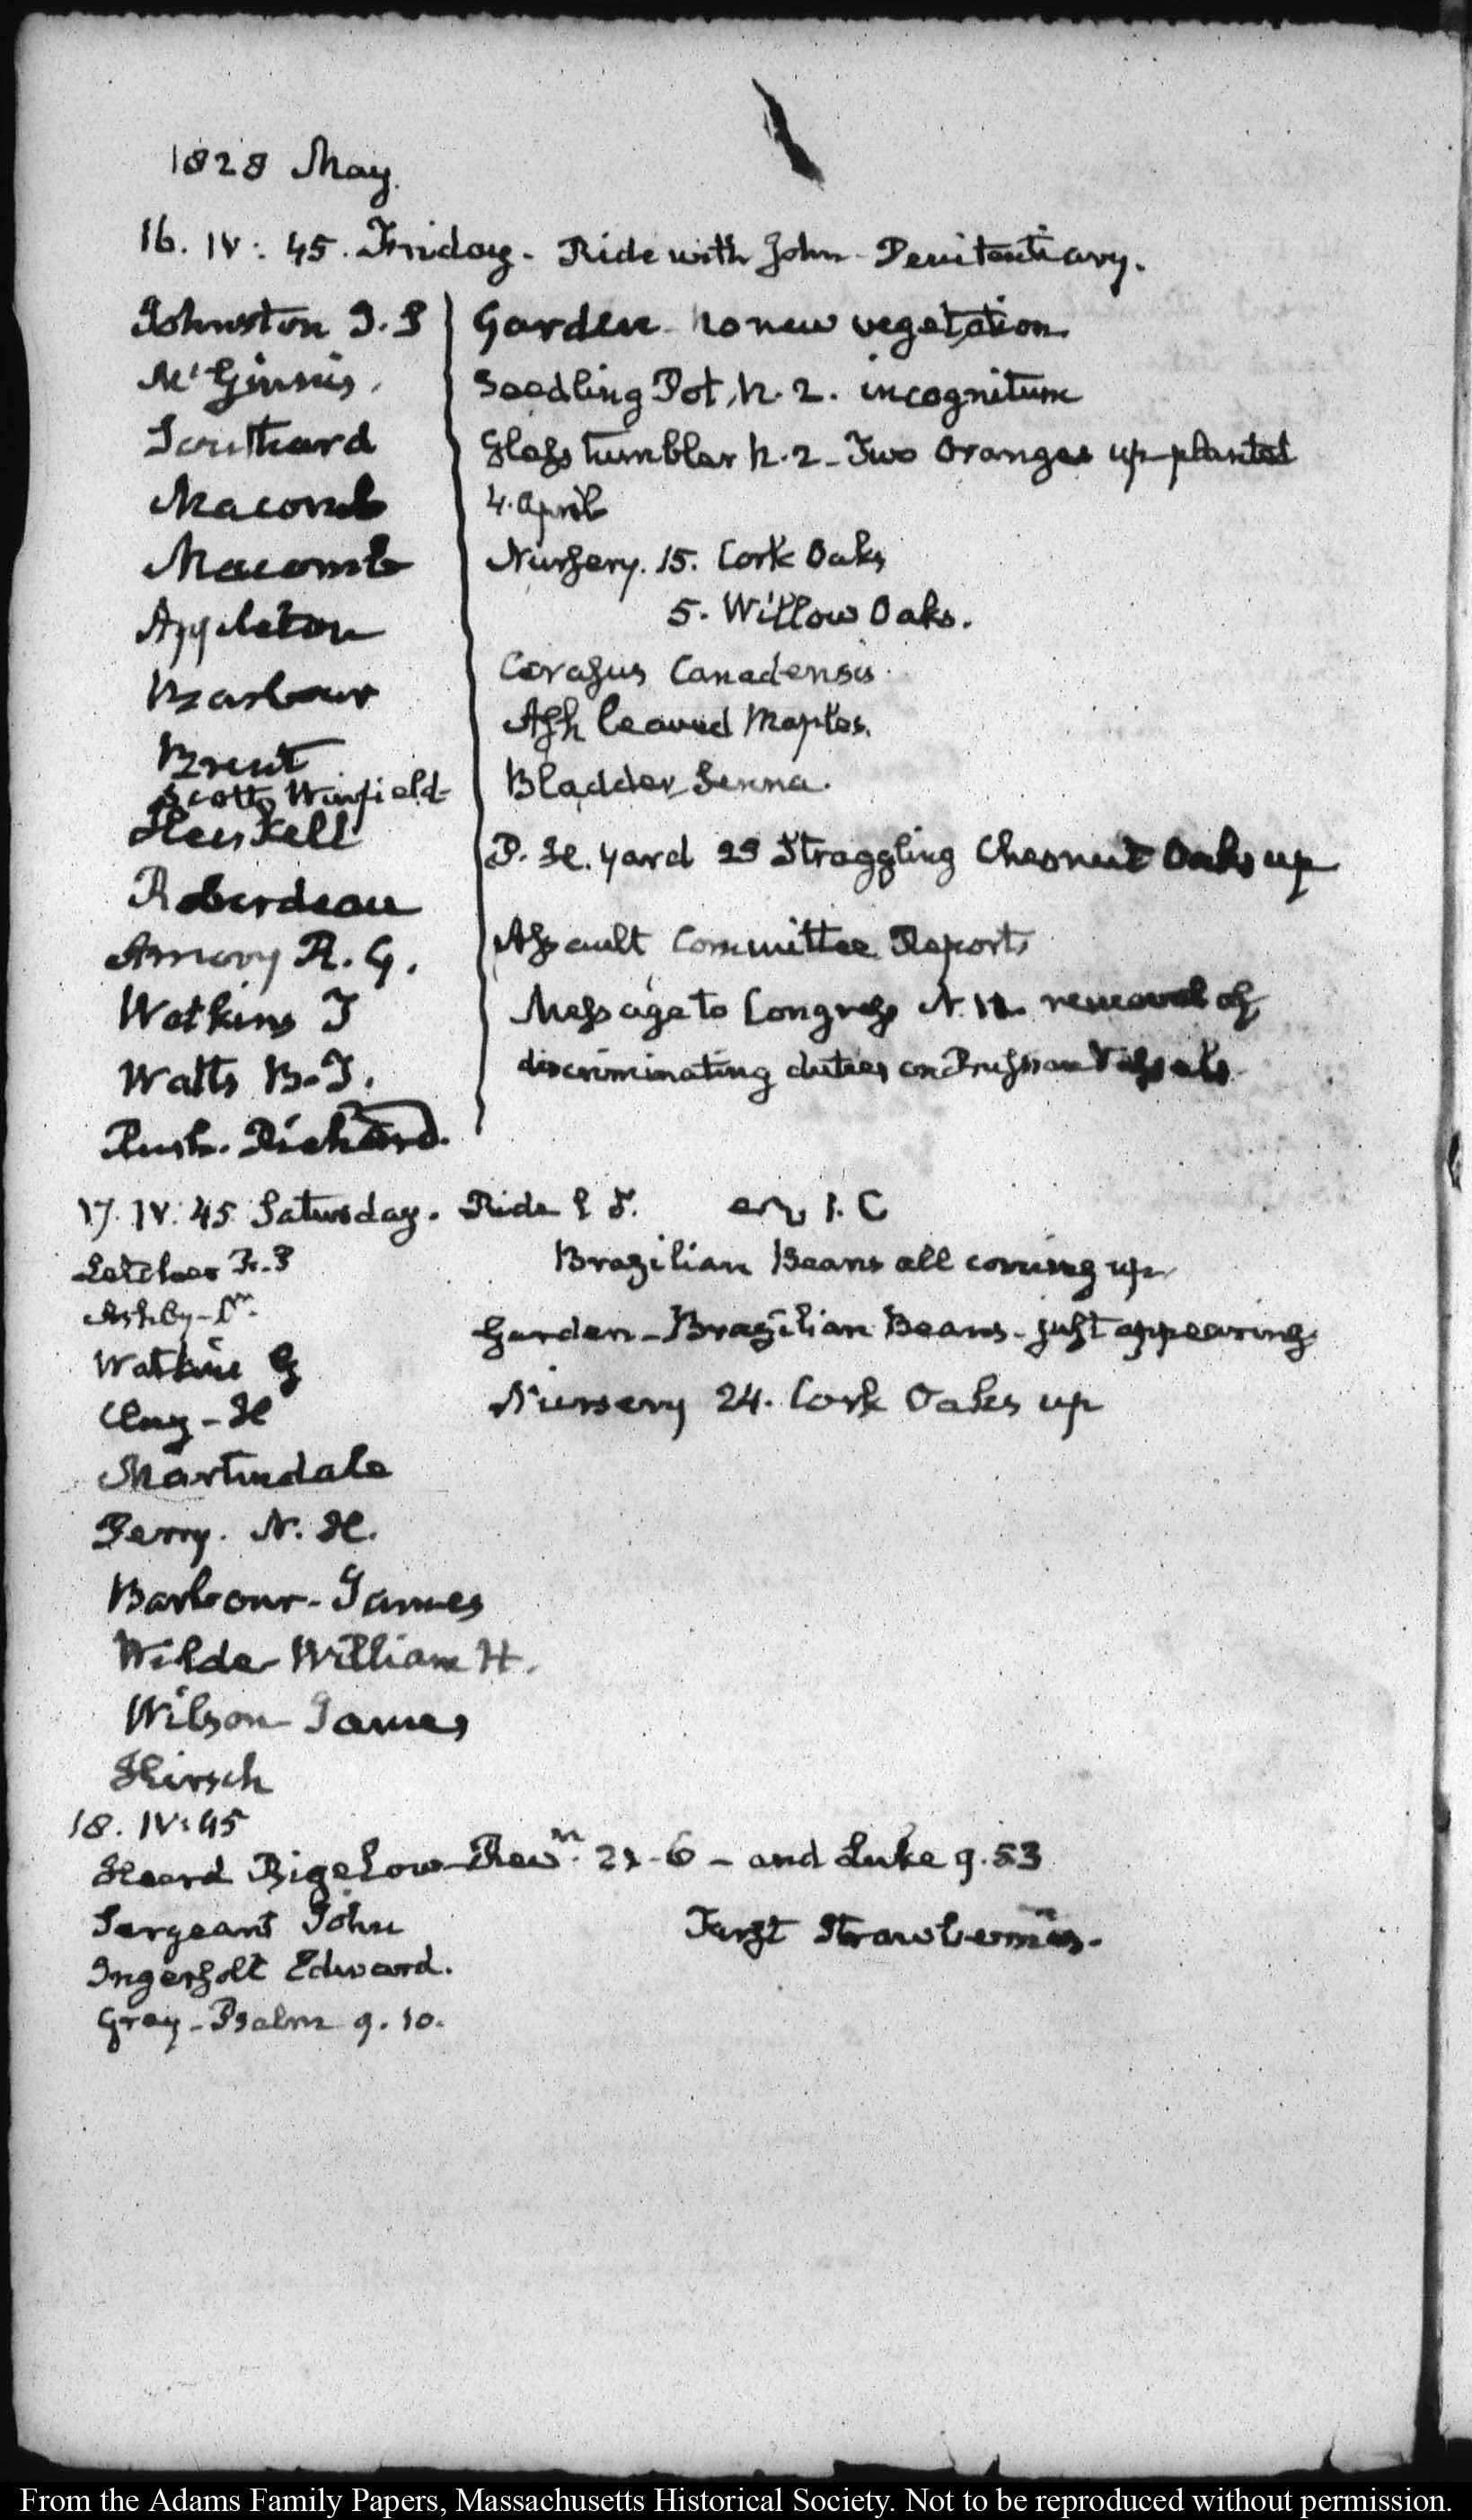 1828 May.
16. IV: 45. Friday. Ride with John - Penitentiary.
Johnston J. S
McGinnis.
Southard
Macomb
Macomb
Appleton
Barbour
Brent
Scott, Winfield
Heiskell
Roberdeau
Amory R. G.
Watkins T
Watts B. T.
Rush. Richard.
Garden no new vegetation
Seedling Pot, N. 2. incognitum
Glass tumbler N. 2 - Two Oranges up planted
4. April
Nursery. 15. Cork Oaks
5. Willow Oaks.
Cerasus Canadensis
Ash leaved Maples.
Bladder Senna.
P. H. yard 23 Straggling Chesnut Oaks up
Assault Committee Reports
Message to Congress removal of
discriminating duties on Prussian Vessels
17. IV: 45 Saturday. Ride
Brazilian Beans all coming up
Letcher R. P
Ashby - Dr.
Garden - Brazilian Beans - just appearing
Watkins G
Clay - H
Nursery 24. Cork Oaks up
Martindale
Perry. N. H.
Barbour - James
Wilde William H.
Wilson James
Hirsch
18. IV: 45
Heard Bigelow - Revn. 22-6 - and Luke 9. 53
Sergeant John
First Strawberries.
Ingersoll Edward.
Gray - Psalm 9. 10.
From the Adams Family Papers, Massachusetts Historical Society. Not to be reproduced without permission.